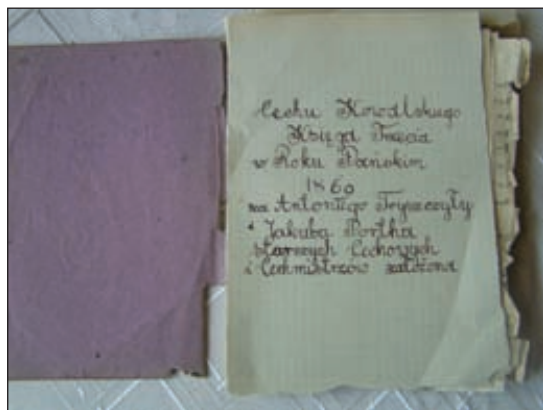 Cechu Kowalskiego
Księga Trzecia
w Roku Pańskim
1860
za Antoniego Tryszczyły
i Jakuba Portha
Starszych Cechowych
i Cechmistrzów założona